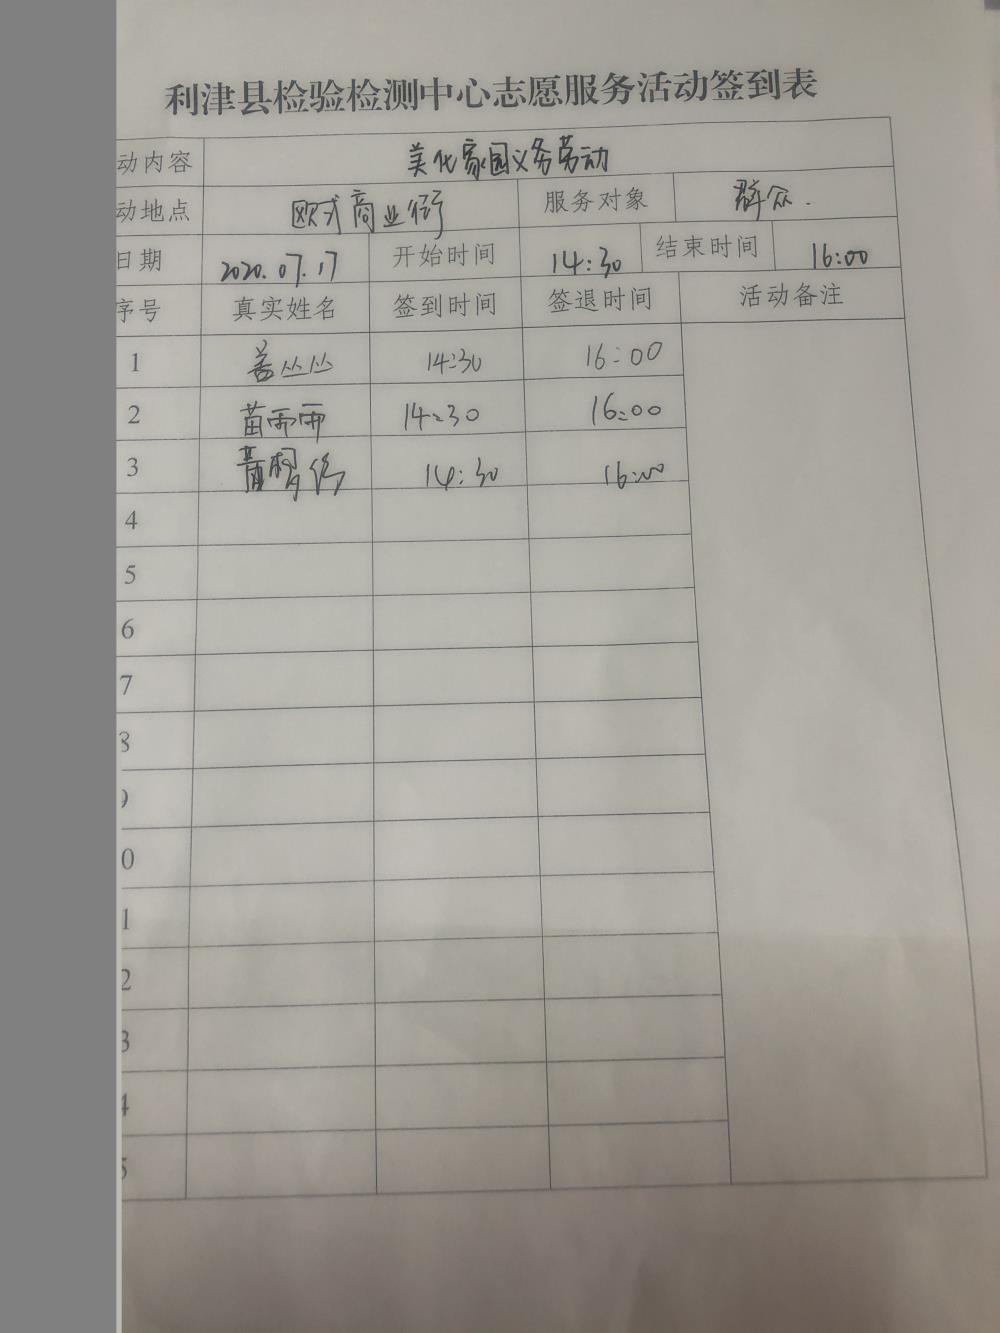 利津县检验检测中心志愿服务活动签到表
动内容 美化家园义务劳动
动地点 欧式商业街 服务对象 群众.
日期 2020.07.17 开始时间 14:30 结束时间 16:00
序号 真实姓名 签到时间 签退时间 活动备注
1 盖丛丛 14:30 16:00
2 苗雨雨 14:30 16:00
3 14:30 16:00
4
5
6
7
8
9
0
1
2
3
4
5